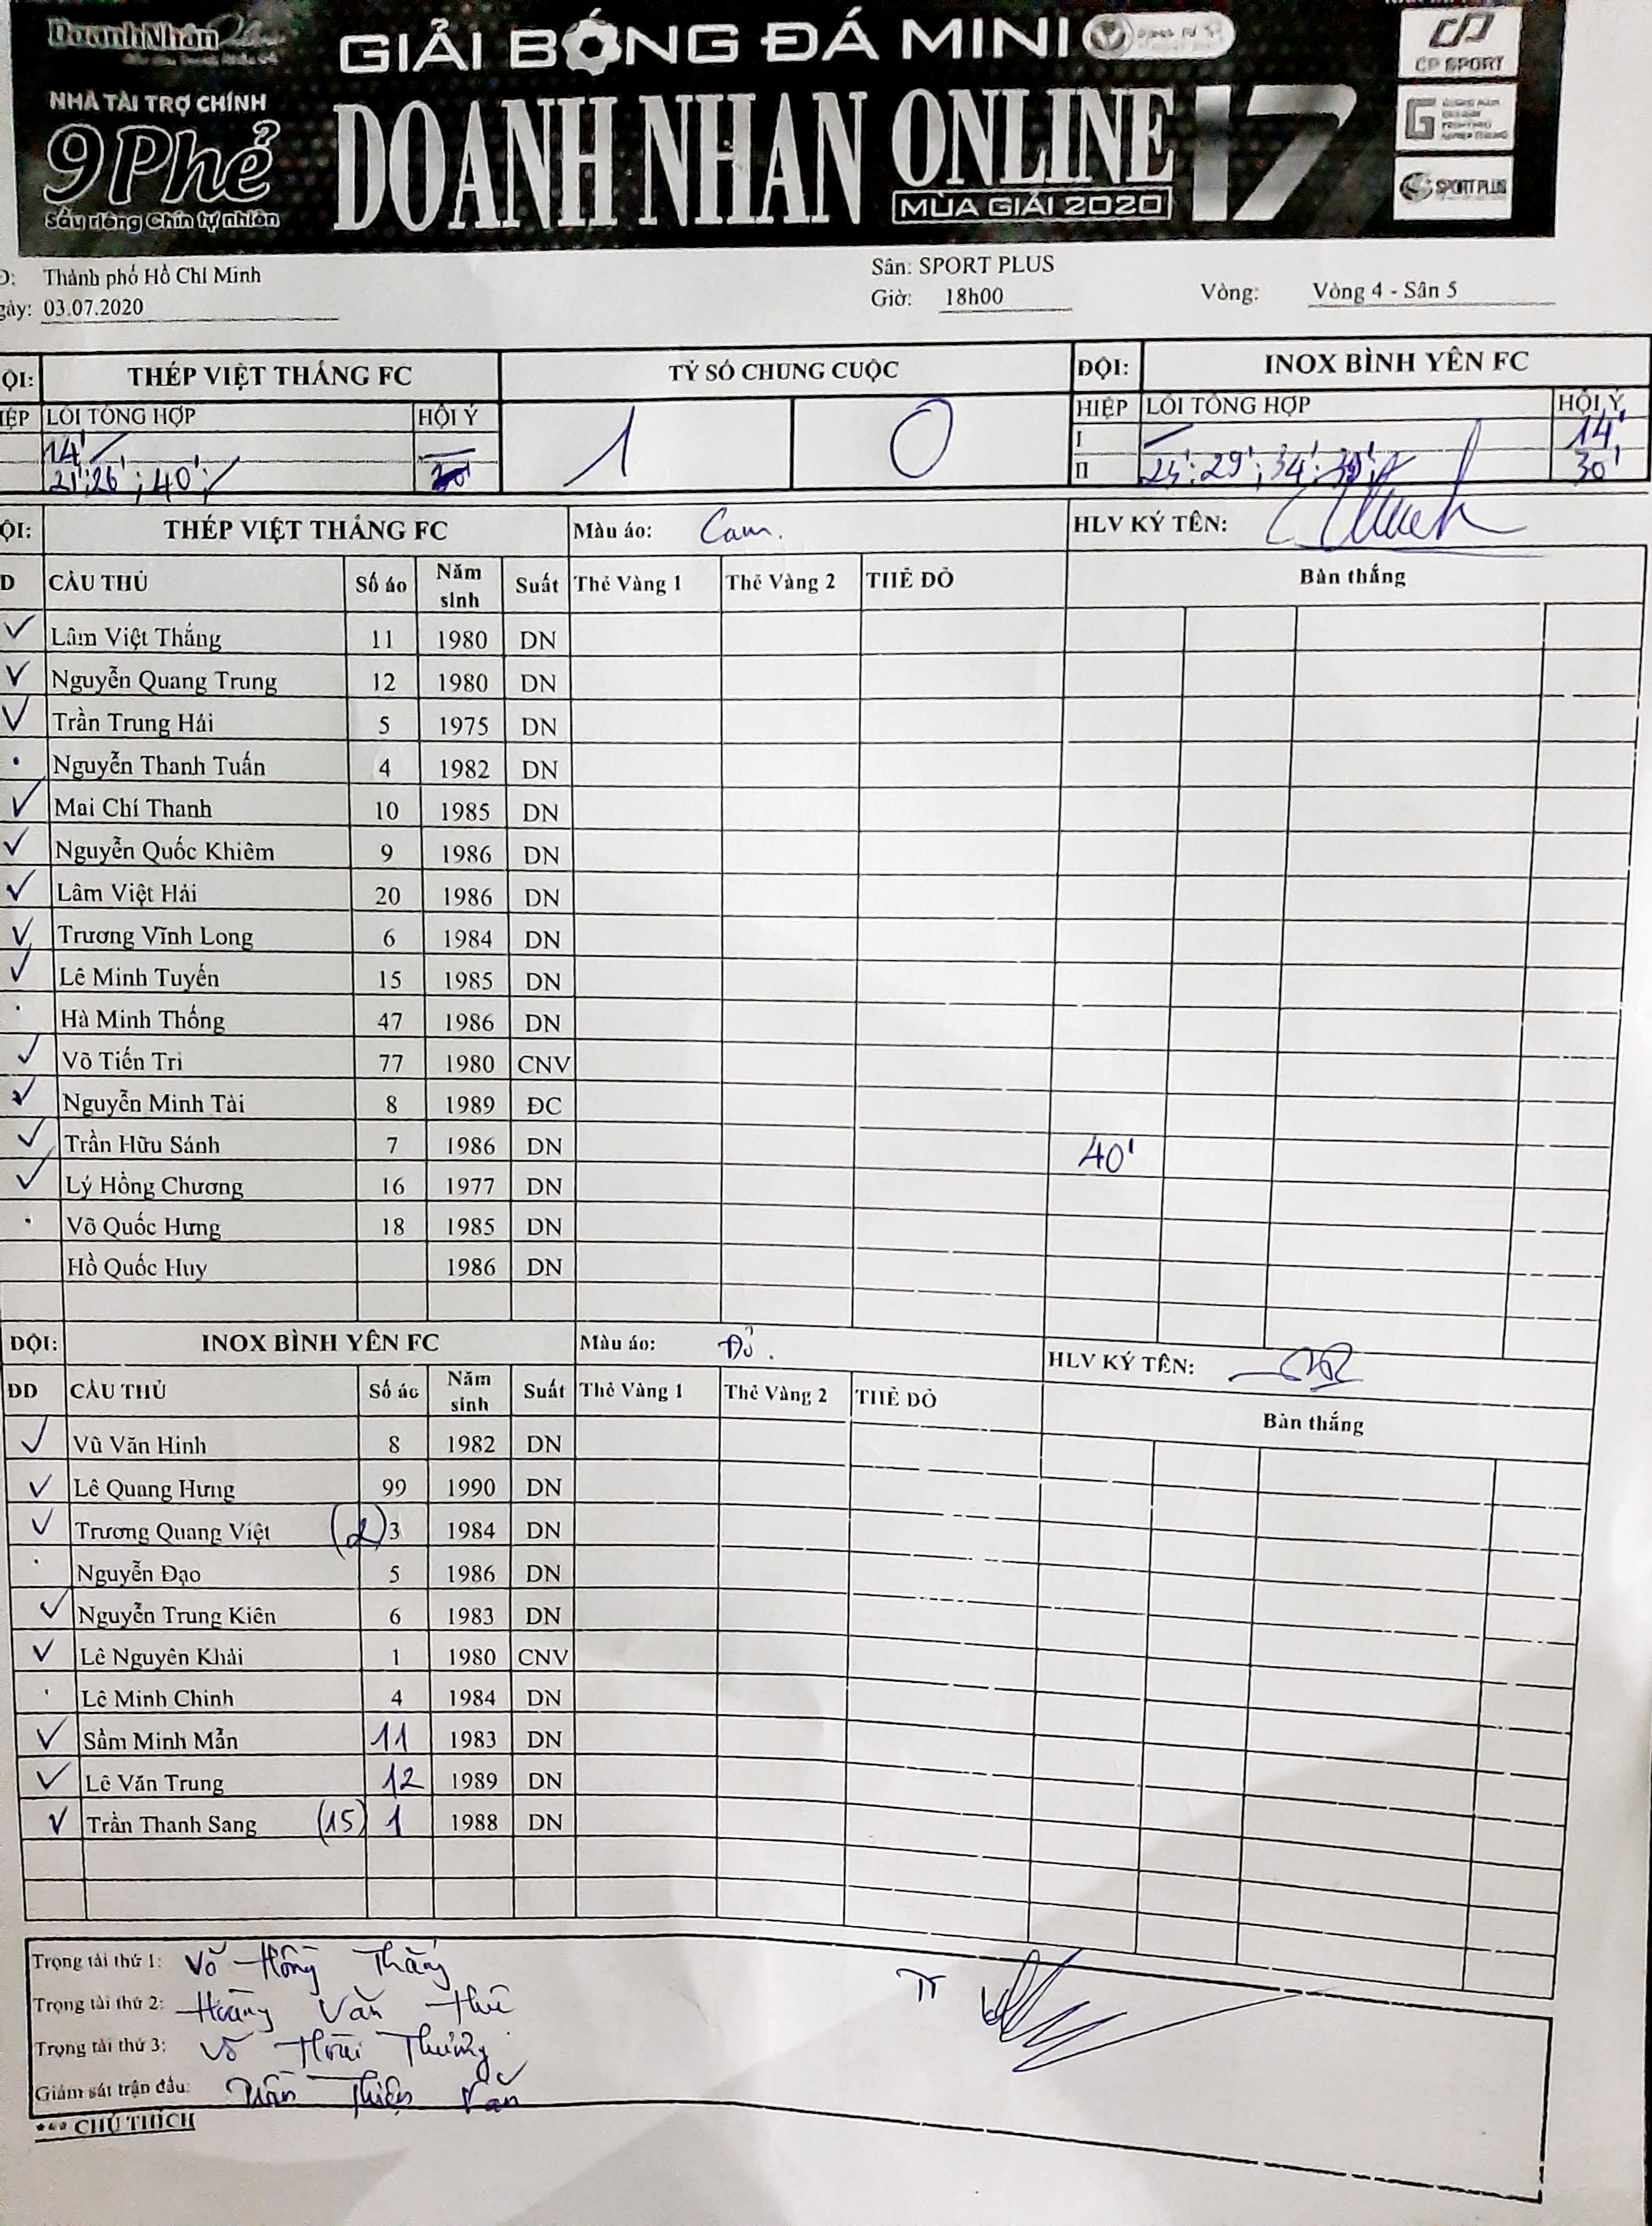 DoanhNhân
GIẢI BÓNG ĐÁ MINI
NHÀ TÀI TRỢ CHÍNH
9Phẻ
Sầu riêng Chín tự nhiên
DOANH NHAN ONLINE 17
MÙA GIẢI 2020
CP SPORT
SPORT PLUS
Đ: Thành phố Hồ Chí Minh
Sân: SPORT PLUS
gày: 03.07.2020
Giờ: 18h00
Vòng: Vòng 4 - Sân 5
ỘI: THÉP VIỆT THẮNG FC TỶ SỐ CHUNG CUỘC ĐỘI: INOX BÌNH YÊN FC
IỆP LỖI TỔNG HỢP HỘI Ý 1 0 HIỆP LỖI TỔNG HỢP HỘI Ý
14' I 14'
21';26';40'; II 25';29';34'; 30'
ỘI: THÉP VIỆT THẮNG FC Màu áo: Cam. HLV KÝ TÊN:
D CẦU THỦ Số áo Năm sinh Suất Thẻ Vàng 1 Thẻ Vàng 2 THẺ ĐỎ Bàn thắng
✓ Lâm Việt Thắng 11 1980 DN
✓ Nguyễn Quang Trung 12 1980 DN
✓ Trần Trung Hải 5 1975 DN
. Nguyễn Thanh Tuấn 4 1982 DN
✓ Mai Chí Thanh 10 1985 DN
✓ Nguyễn Quốc Khiêm 9 1986 DN
✓ Lâm Việt Hải 20 1986 DN
✓ Trương Vĩnh Long 6 1984 DN
✓ Lê Minh Tuyến 15 1985 DN
. Hà Minh Thống 47 1986 DN
✓ Võ Tiến Tri 77 1980 CNV
✓ Nguyễn Minh Tài 8 1989 ĐC
✓ Trần Hữu Sánh 7 1986 DN 40'
✓ Lý Hồng Chương 16 1977 DN
. Võ Quốc Hưng 18 1985 DN
Hồ Quốc Huy 1986 DN
ĐỘI: INOX BÌNH YÊN FC Màu áo: Đỏ. HLV KÝ TÊN:
DD CẦU THỦ Số áo Năm sinh Suất Thẻ Vàng 1 Thẻ Vàng 2 THẺ ĐỎ Bàn thắng
✓ Vũ Văn Hinh 8 1982 DN
✓ Lê Quang Hưng 99 1990 DN
✓ Trương Quang Việt (2) 3 1984 DN
. Nguyễn Đạo 5 1986 DN
✓ Nguyễn Trung Kiên 6 1983 DN
✓ Lê Nguyên Khải 1 1980 CNV
. Lê Minh Chinh 4 1984 DN
✓ Sầm Minh Mẫn 11 1983 DN
✓ Lê Văn Trung 12 1989 DN
✓ Trần Thanh Sang (15) 1 1988 DN
Trọng tài thứ 1: Võ Hồng Thắng
Trọng tài thứ 2: Hoàng Văn Thu
Trọng tài thứ 3: Võ Hoài Thưởng
Giám sát trận đấu: Trần Thiện Văn
*** CHÚ THÍCH